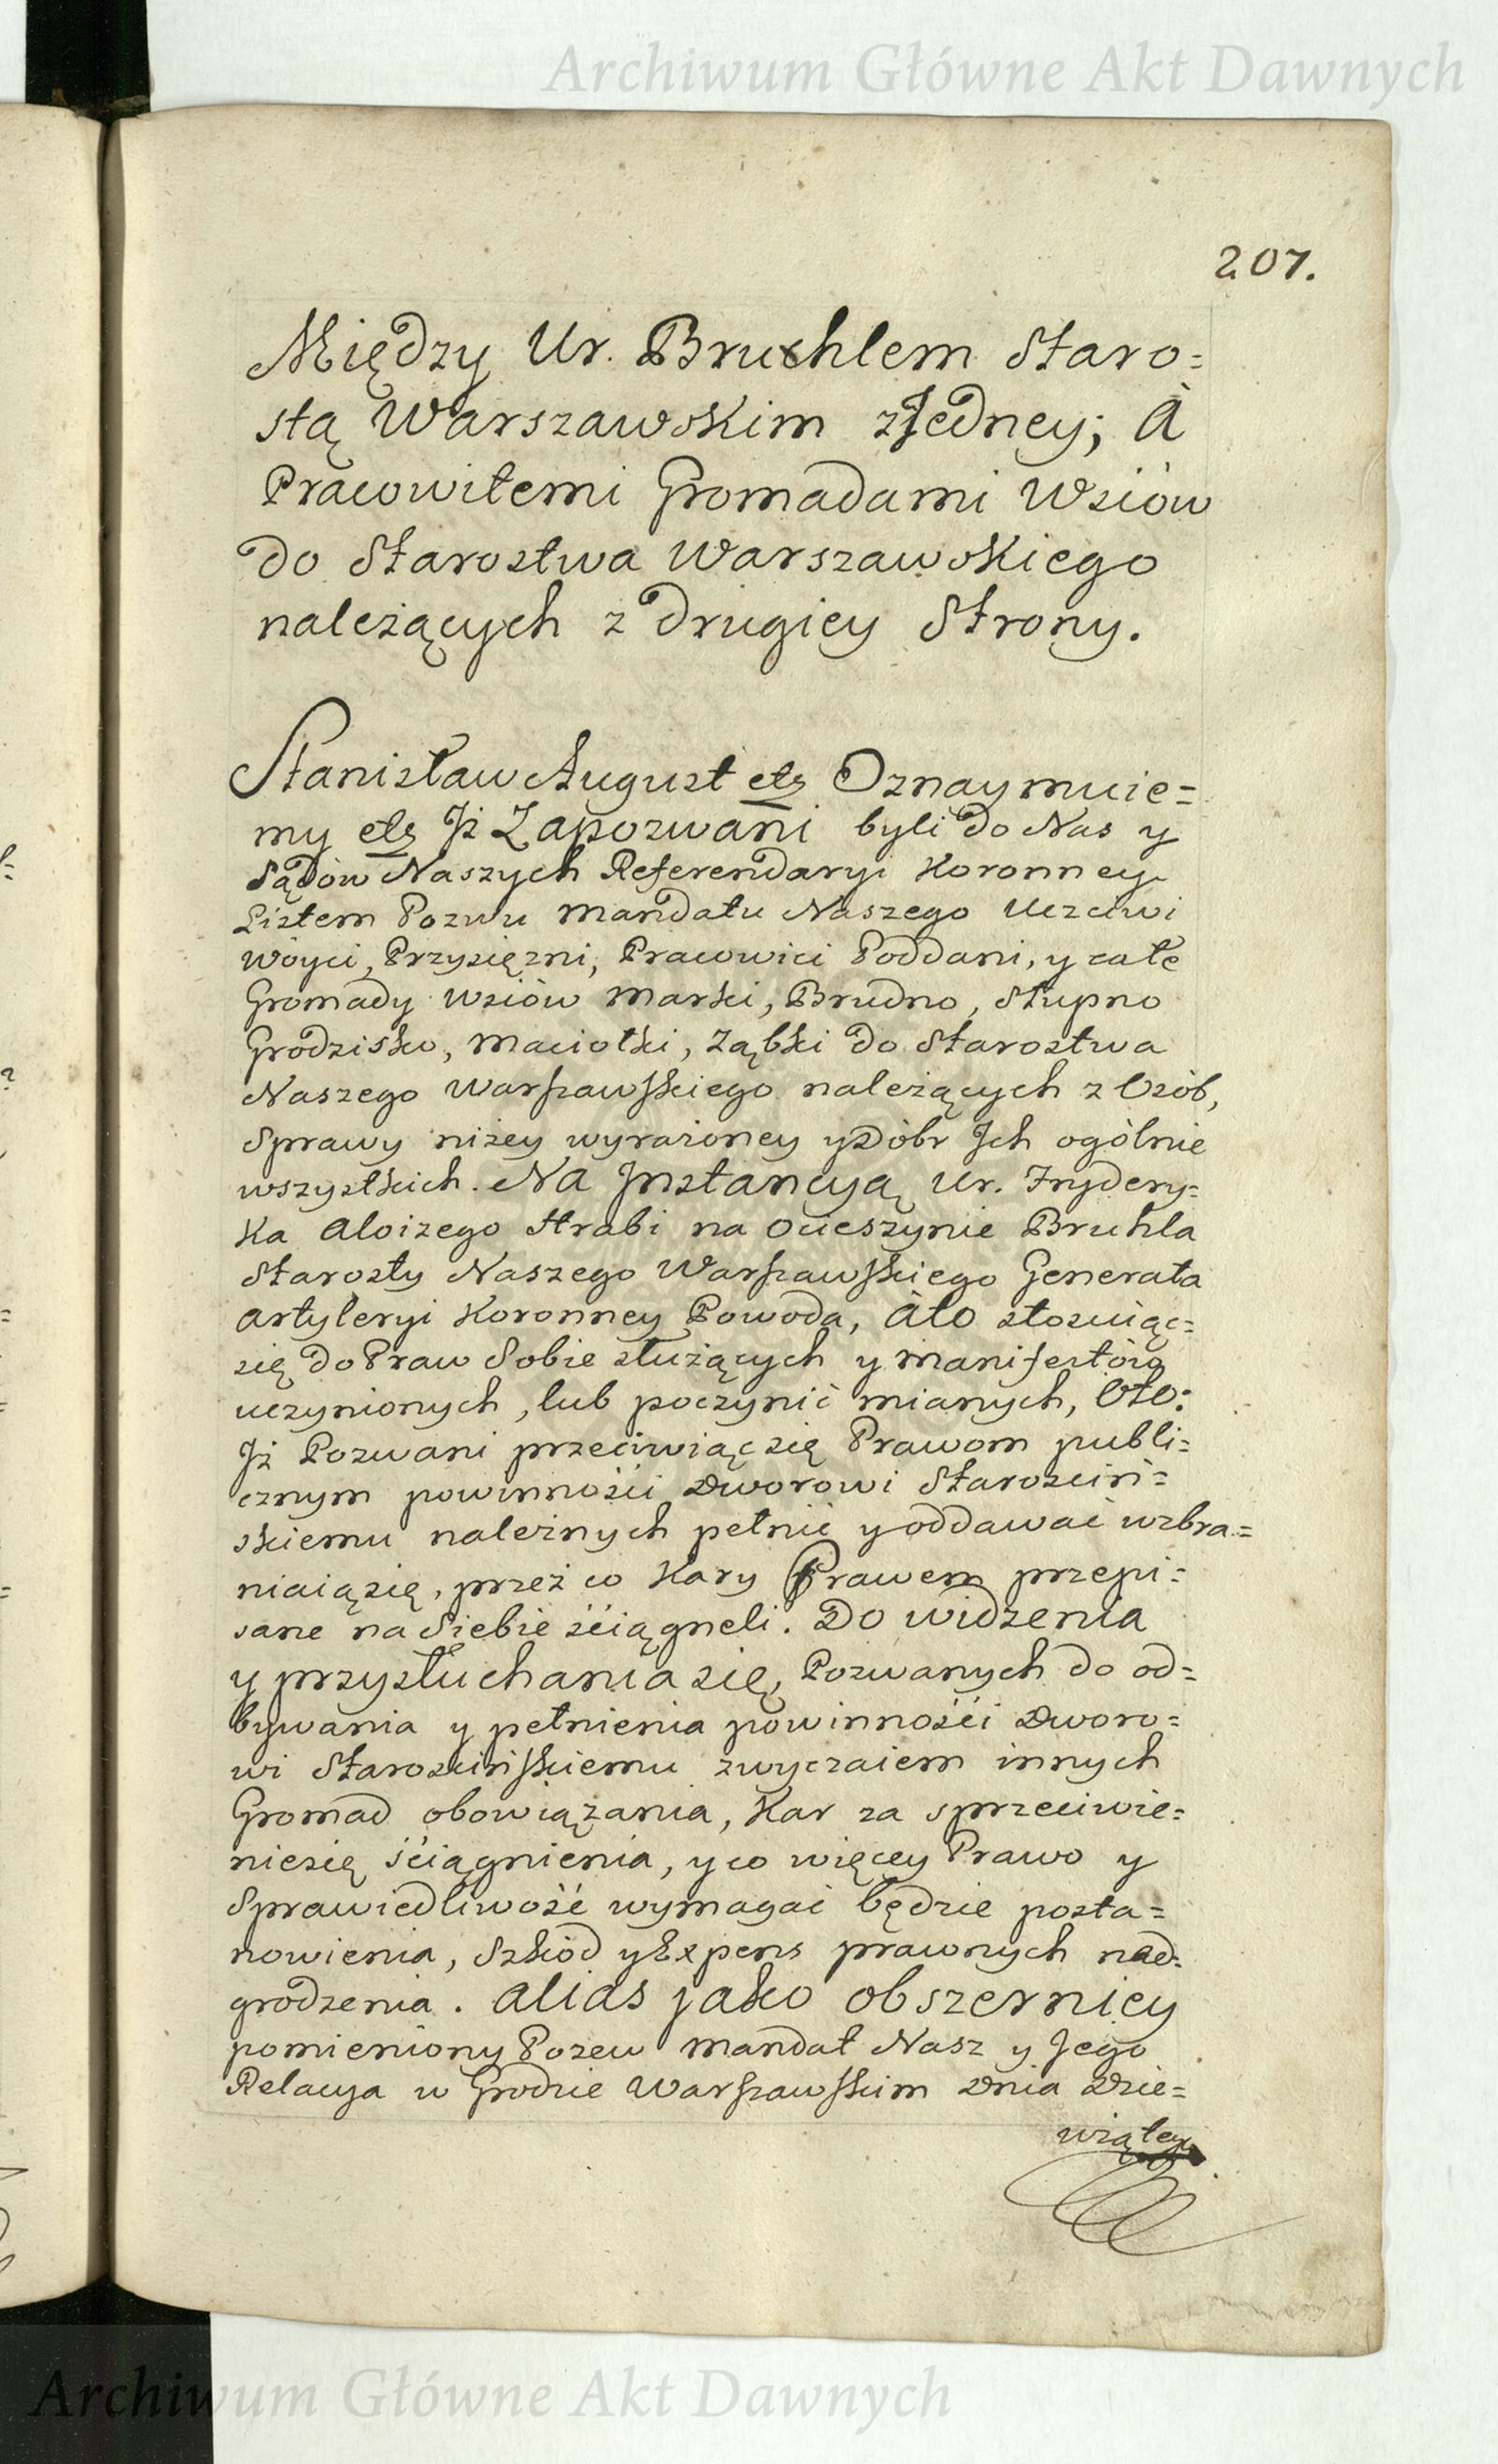 Archiwum Główne Akt Dawnych
207.
Między Ur. Bruchlem Staro=
stą Warszawskim z Jedney; A
Pracowitemi Gromadami Wsiów
do Starostwa Warszawskiego
należących z drugiey Strony.
Stanisław August etc Oznaymuie=
my etc Jż Zapozwani byli do Nas y
Sądów Naszych Referendaryi Koronney
Listem Pozwu Mandatu Naszego Uczciwi
Woyci, Przysiężni, Pracowici Poddani, y całe
Gromady Wsiów Marki, Brudno, Słupno
Grodzisko, Maciołki, Ząbki do Starostwa
Naszego Warszawskiego należących z Osób,
Sprawy niżey wyrażoney y Dóbr Jch ogólnie
wszystkich. Na Jnstancyą Ur. Frydery=
ka Aloizego Hrabi na Ocieszynie Bruhla
Starosty Naszego Warszawskiego Generała
Artyleryi Koronney Powoda, Ato stosuiąc=
się do Praw Sobie służących y Manifestów
uczynionych, lub poczynić mianych, Oto:
Jż Pozwani przeciwiąc się Prawom publi=
cznym powinności Dworowi Starościń=
skiemu należnych pełnić y oddawać wzbra=
niaią się, przez co Kary Prawem przepi=
sane na Siebie ściągneli. Do widzenia
y przysłuchania się, Pozwanych do od=
bywania y pełnienia powinności Dworo=
wi Starościńskiemu zwyczaiem innych
Gromad obowiązania, Kar za sprzeciwie=
nie się ściągnienia, y co więcey Prawo y
Sprawiedliwość wymagać będzie posta=
nowienia, Szkód y Expens prawnych nad=
grodzenia. Alias jako obszerniey
pomieniony Pozew Mandat Nasz y Jego
Relacya w Grodzie Warszawskim Dnia Dzie=
wiątey
Archiwum Główne Akt Dawnych